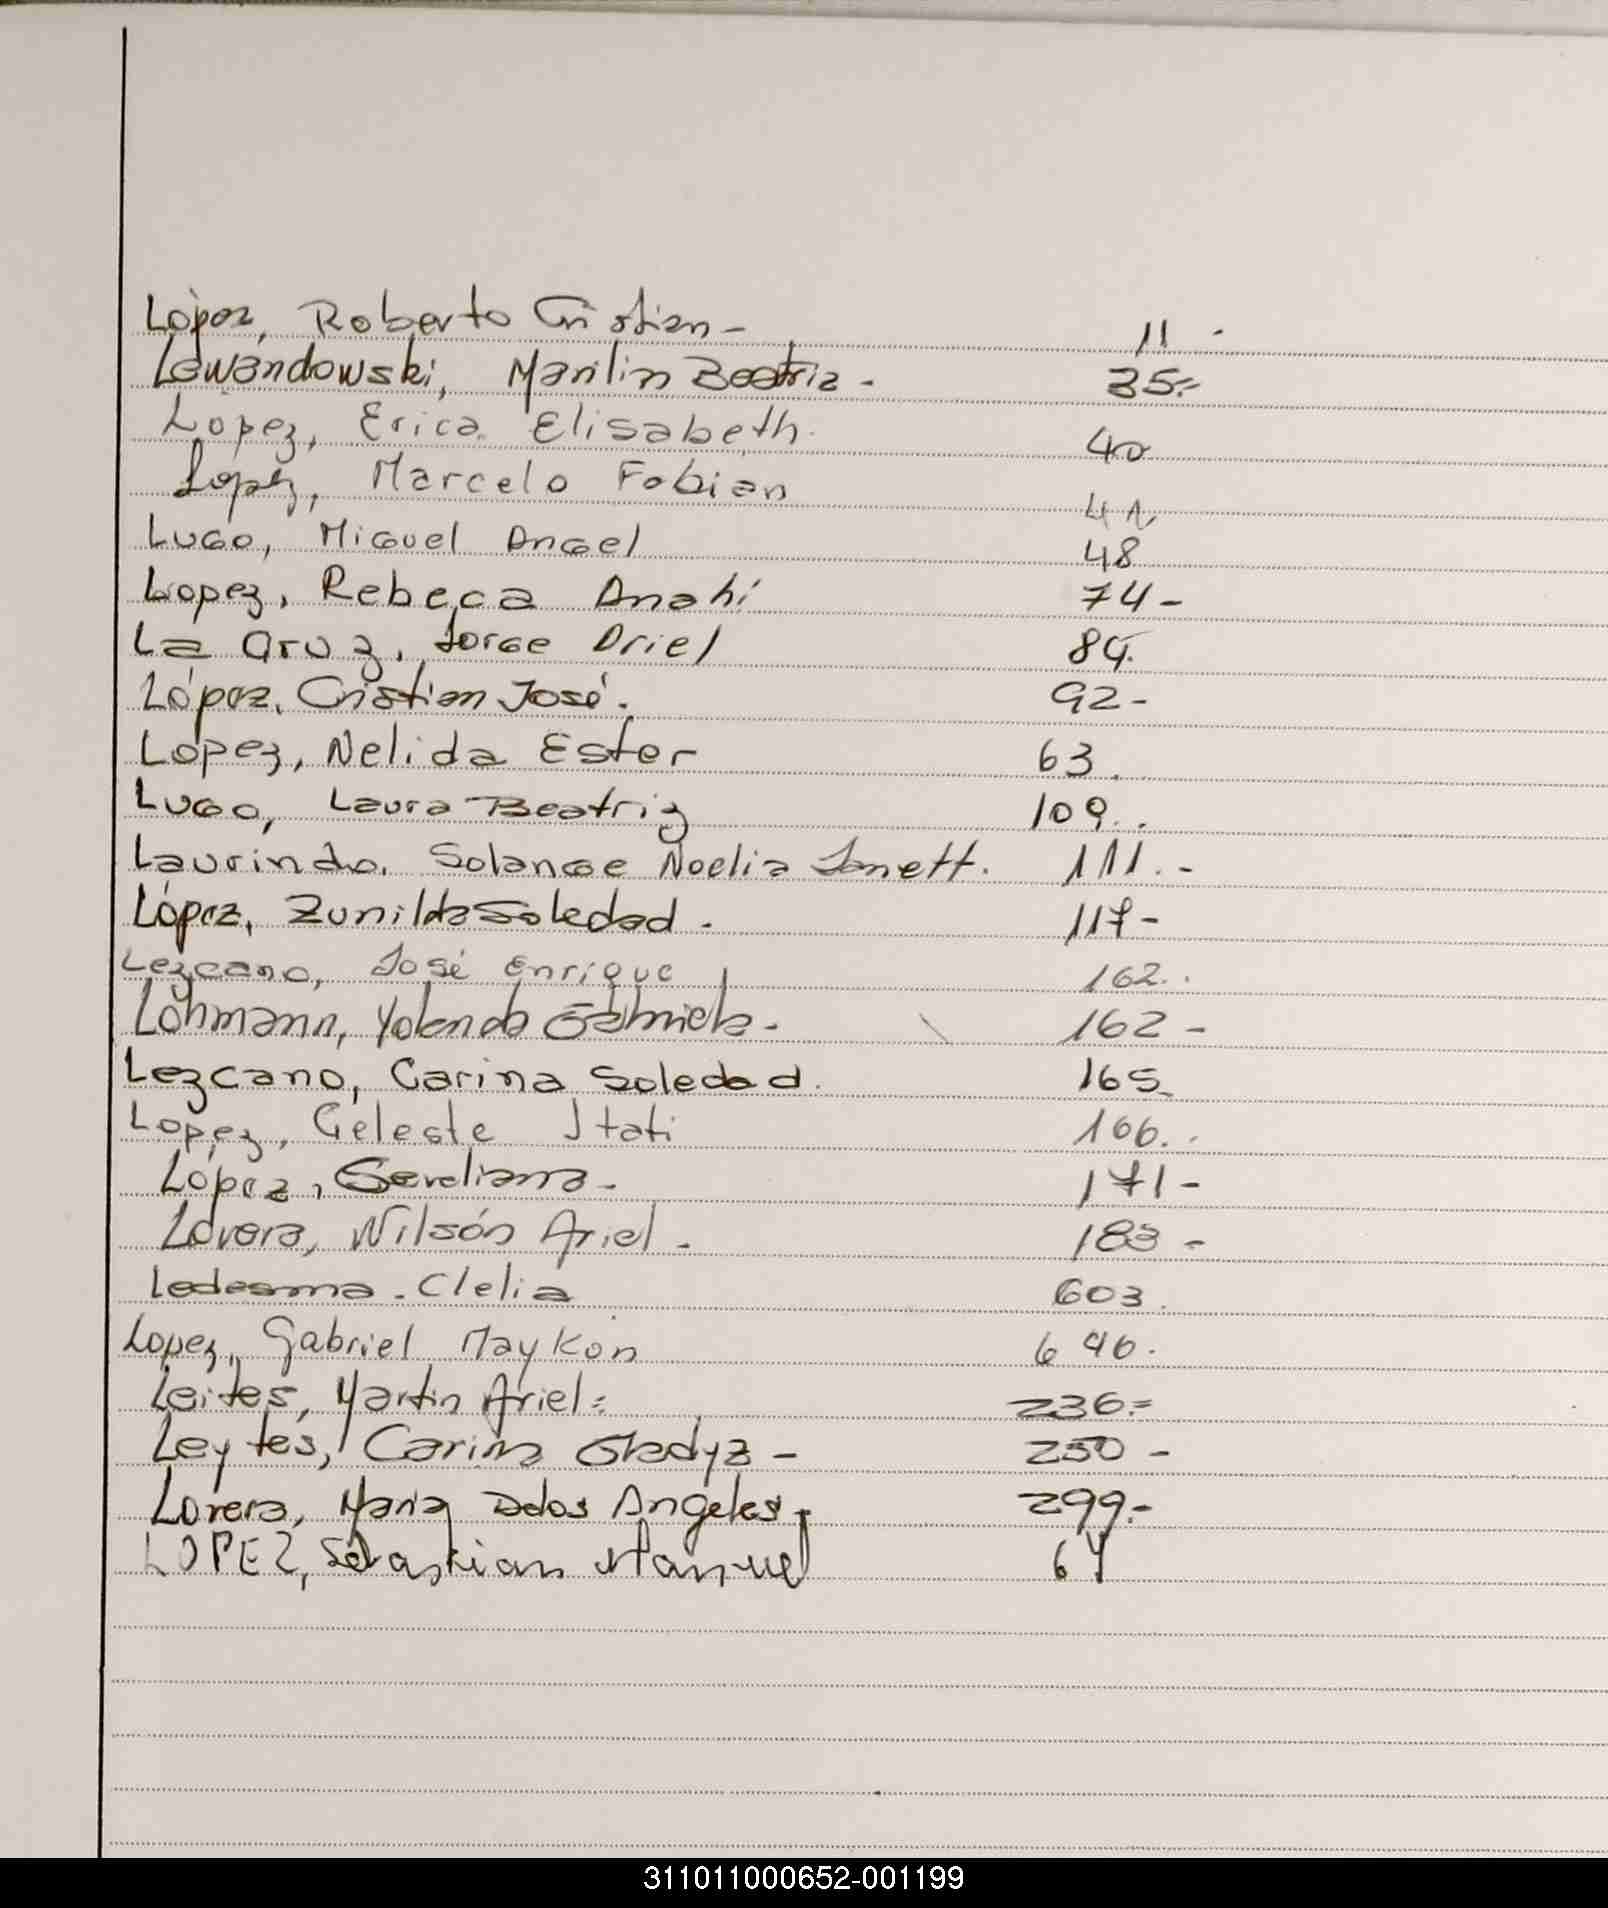 López, Roberto Cristian - 11 -
Lewandowski, Marilin Beatriz - 35.-
Lopez, Erica Elisabeth. 40
Lopez, Marcelo Fabian 41
Lugo, Miguel Angel 48
Lopez, Rebeca Anahi 74 -
La Cruz, Jorge Ariel 84.
López, Cristian José. 92 -
Lopez, Nelida Ester 63.
Lugo, Laura Beatriz 109..
Laurindo, Solange Noelia Janett. 111.-
López, Zunilda Soledad. 117 -
Lezcano, José Enrique 162..
Lohmann, Yolanda Gabriela. 162 -
Lezcano, Carina Soledad. 165.
Lopez, Celeste Itati 166..
López, - 171 -
Lovera, Wilsón Ariel. 183 -
Ledesma. Clelia 603.
Lopez, Gabriel Maykon 646.
Leites, Martin Ariel: 236.=
Leytes, Carina Gladyz - 250 -
Lovera, Maria Delos Angeles - 299.-
LOPEZ, Sebastian Manuel 64
311011000652-001199